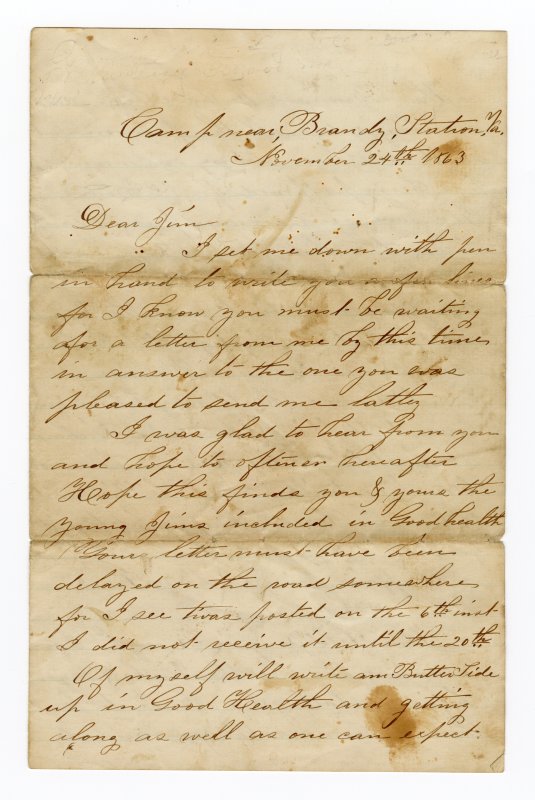 Camp near, Brandy, Station, Va.
November 24th 1863
Dear Jim
I set me down with pen
in hand to write you a few lines
for I know you must be waiting
for a letter from me by this time,
in answer to the one you was
pleased to send me latley
I was glad to hear from you
and hope to oftener hereafter
Hope this finds you & yours the
young Jims included in Good health
Yours letter must have been
delayed on the road somewhere,
for I see twas posted on the 6th inst
I did not receive it until the 20th
Of myself will write am Butter Side
up in Good Health and getting
along as well as one can expect.